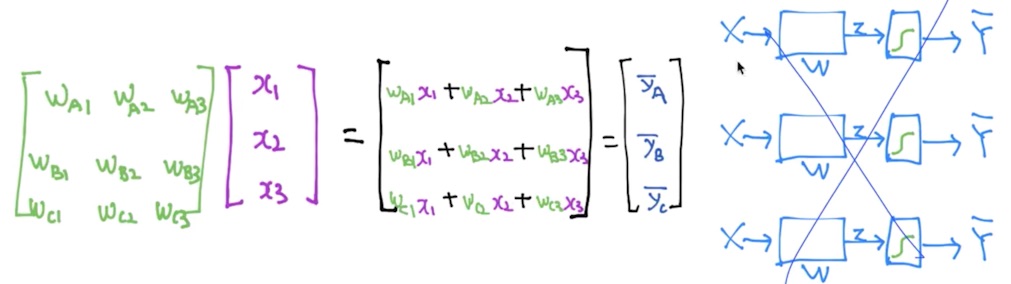 wA1 wA2 wA3
wB1 wB2 wB3
wC1 wC2 wC3
x1
x2
x3
=
wA1x1 + wA2x2 + wA3x3
wB1x1 + wB2x2 + wB3x3
wC1x1 + wC2x2 + wC3x3
=
ȳA
ȳB
ȳC
X → Z → ∫ → Ȳ
W
X → Z → ∫ → Ȳ
W
X → Z → ∫ → Ȳ
W